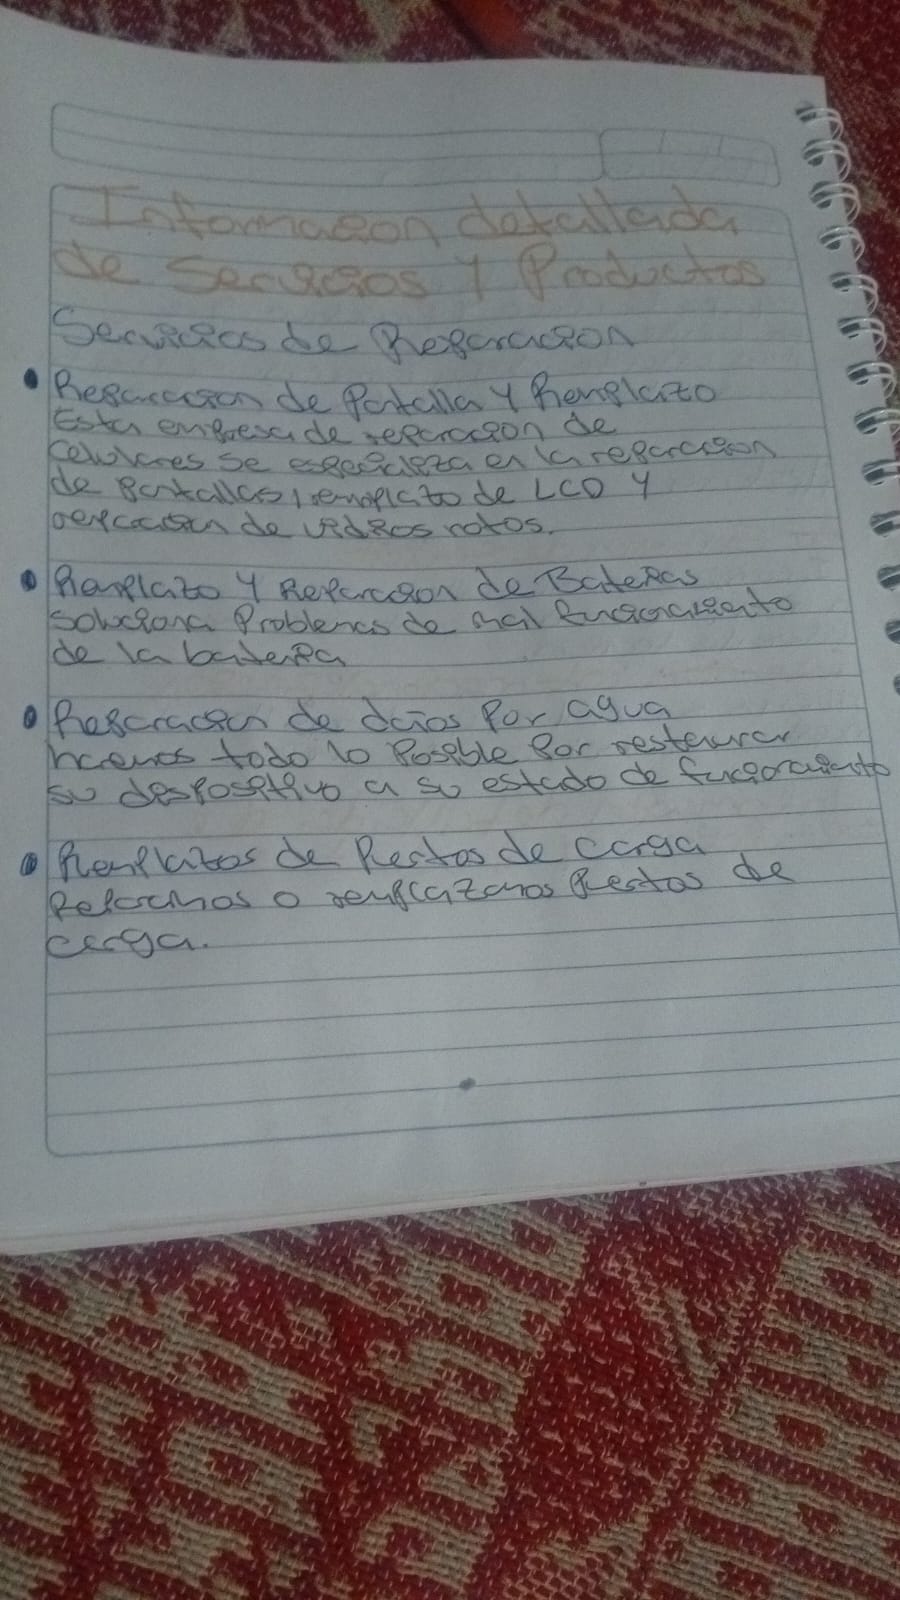 Informacion detallada
de Servicios y Productos
Servicios de Reparacion
Reparacion de Pantalla y Remplazo
Esta empresa de reparacion de
Celulares se especializa en la reparacion
de pantallas, remplazo de LCD y
reparacion de vidrios rotos.
Remplazo y Reparacion de Baterias
Soluciona Problemas de mal funcionamiento
de la bateria
Reparacion de daños Por agua
hacemos todo lo Posible Por restaurar
su dispositivo a su estado de funcionamiento
Remplazos de Puertos de Carga
Reparamos o remplazamos Puertos de
carga.